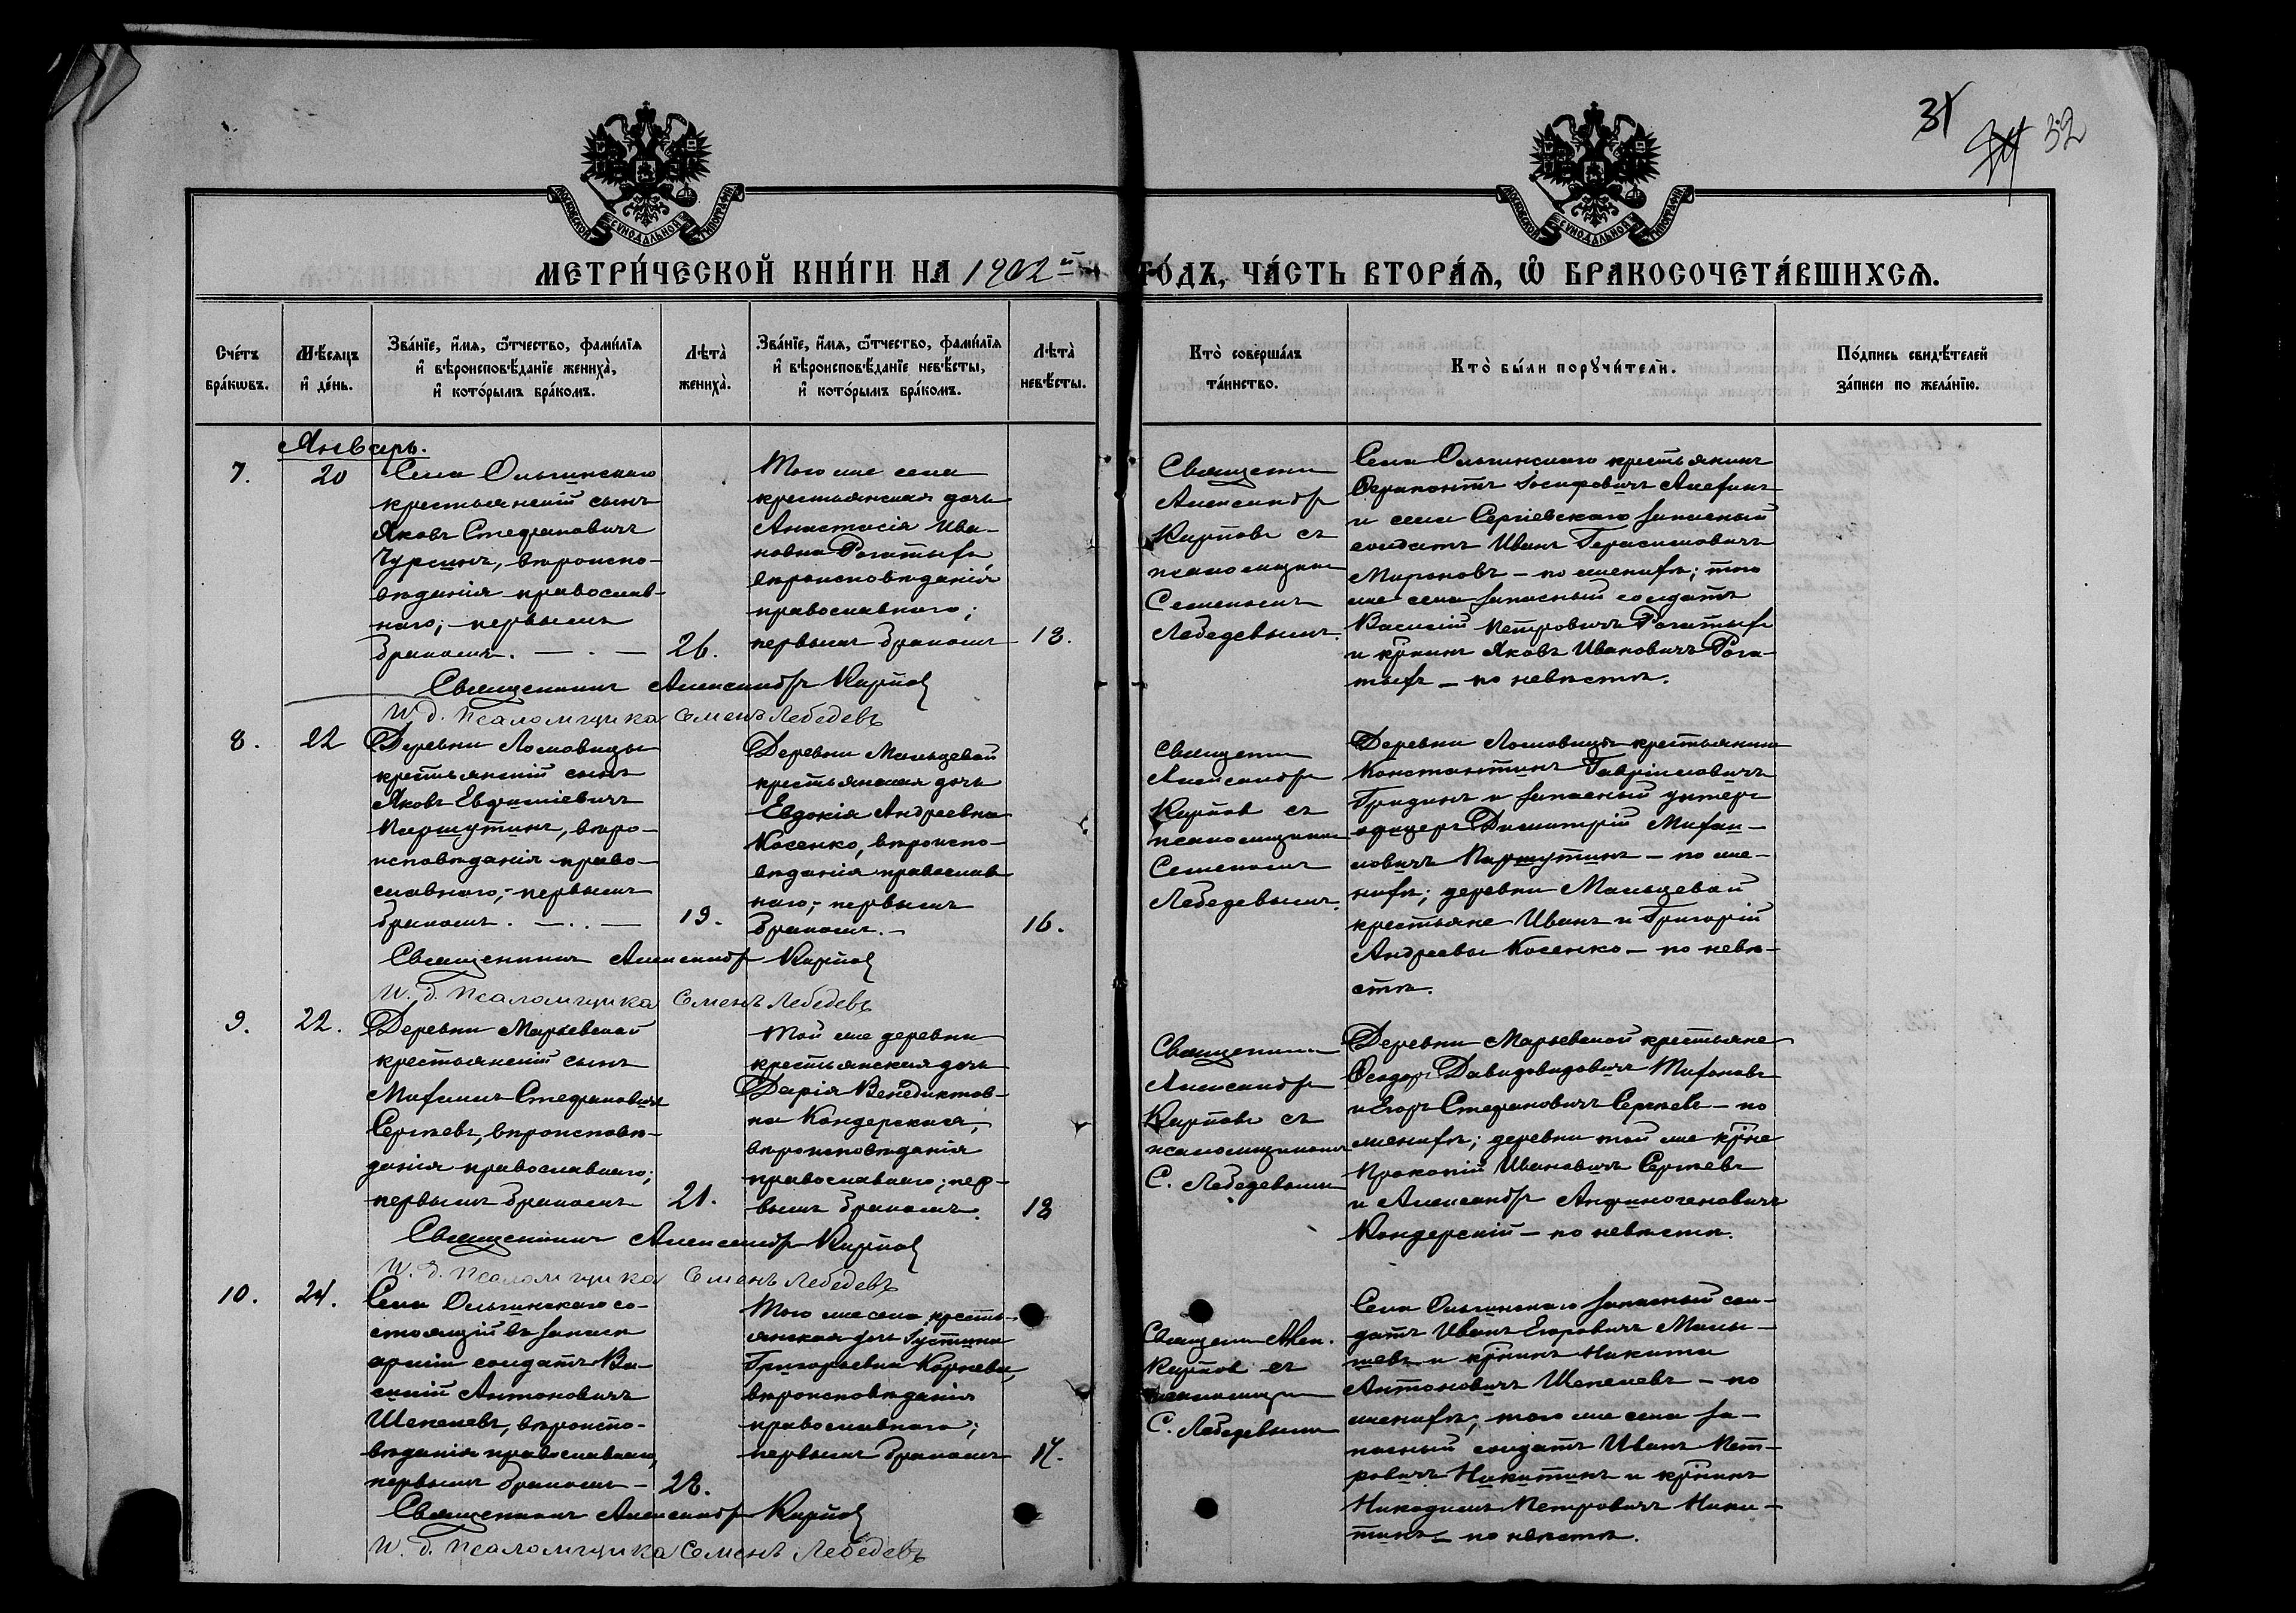 31 34 32
МОСКОВСКОЙ СѴНОДАЛЬНОЙ ТИПОГРАФІИ
МОСКОВСКОЙ СѴНОДАЛЬНОЙ ТИПОГРАФІИ
МЕТРИ́ЧЕСКОЙ КНИ́ГИ НА 1902й ГО́ДЪ, ЧА́СТЬ ВТОРА́Ѧ, Ѡ҆ БРАКОСОЧЕТА́ВШИХСѦ.
Сче́тъ
бра́кѡвъ.
Мѣ́сѧцъ
и҆ де́нь.
Зва́нїе, и҆́мѧ, ѻ҆́тчество, фами́лїѧ
и҆ вѣроисповѣ́данїе жениха̀,
и҆ кото́рымъ бра́комъ.
Лѣта̀
жениха̀.
Зва́нїе, и҆́мѧ, ѻ҆́тчество, фами́лїѧ
и҆ вѣроисповѣ́данїе невѣ́сты,
и҆ кото́рымъ бра́комъ.
Лѣта̀
невѣ́сты.
Кто̀ соверша́лъ
та́инство.
Кто̀ бы́ли порꙋчи́тели.
По́дпись свидѣ́телей
за́писи по жела́нїю.
Январь.
7.
20
Села Ольгинскаго
крестьянскій сынъ
Яковъ Стефановичъ
Чурсинъ, вѣроиспо-
вѣданія православ-
наго; первымъ
бракомъ. — . —
26.
Того же села
крестьянская дочь
Анастасія Ива-
новна Рогатыхъ
вѣроисповѣданія
православнаго;
первымъ бракомъ
18.
Священн
Александръ
Карповъ съ
псаломщик
Семеномъ
Лебедевымъ.
Села Ольгинскаго крестьянинъ
Ѳерапонтъ Іосифовичъ Алехинъ
и села Сергіевскаго запасный
солдатъ Иванъ Герасимовичъ
Мироновъ — по женихѣ; того
же села запасный солдатъ
Василій Петровичъ Рогатыхъ
и кр̃нинъ Яковъ Ивановичъ Рога-
тыхъ — по невѣстѣ.
Священникъ Александръ Карпов
И. д. псаломщика Семенъ Лебедевъ
8.
22
Деревни Ломовицы
крестьянскій сынъ
Яковъ Евфиміевичъ
Паршутинъ, вѣро-
исповѣданія право-
славнаго; первымъ
бракомъ. —..—
19.
Деревни Мальцевой
крестьянская дочь
Евдокія Андреевна
Косенко, вѣроиспо-
вѣданія православ
наго; первымъ
бракомъ. —
16.
Священн
Александръ
Карповъ съ
псаломщикомъ
Семеномъ
Лебедевымъ.
Деревни Ломовицы крестьянинъ
Константинъ Гавріиловичъ
Гридинъ и запасный унтеръ
офицеръ Димитрій Михаи-
ловичъ Паршутинъ — по же-
нихѣ; деревни Мальцевой
крестьяне Иванъ и Григорій
Андреевы Косенко — по невѣ-
стѣ.
Священникъ Александръ Карпов
И. д. псаломщика Семенъ Лебедевъ
9.
22.
Деревни Марьевской
крестьянскій сынъ
Михаилъ Стефановичъ
Сергѣевъ, вѣроисповѣ-
данія православнаго;
первымъ бракомъ
21.
Той же деревни
крестьянская дочь
Дарія Венедиктов-
на Кондерская,
вѣроисповѣданія
православнаго; пер-
вымъ бракомъ.
18
Священник
Александръ
Карповъ съ
псаломщикомъ
С. Лебедевымъ
Деревни Марьевской крестьяне
Ѳеодоръ Давидовидовичъ Тихоновъ
и Егоръ Стефановичъ Сергѣевъ — по
женихѣ; деревни той же кр̃не
Прокопій Ивановичъ Сергѣевъ
и Александръ Анфиногеновичъ
Кондерскій — по невѣстѣ.
Священникъ Александръ Карпов
И. д. псаломщика Семенъ Лебедевъ
10.
24.
Села Ольгинскаго со-
стоящій въ запасѣ
арміи солдатъ Ва-
силій Антоновичъ
Шепелевъ, вѣроиспо-
вѣданія православнаго,
первымъ бракомъ —
28.
Того же села кресть-
янская дочь Іустина
Григорьевна Корнева,
вѣроисповѣданія
православнаго;
первымъ бракомъ
17.
Священн Алек.
Карповъ съ
псаломщи
С. Лебедевымъ
Села Ольгинскаго запасный сол-
датъ Иванъ Егоровичъ Малы-
шевъ и кр̃нинъ Никита
Антоновичъ Шепелевъ — по
женихѣ; того же села за-
пасный солдатъ Иванъ Пет-
ровичъ Никитинъ и кр̃нинъ
Никодимъ Петровичъ Ники-
тинъ — по невѣстѣ.
Священникъ Александръ Карпов
И. д. псаломщика Семенъ Лебедевъ